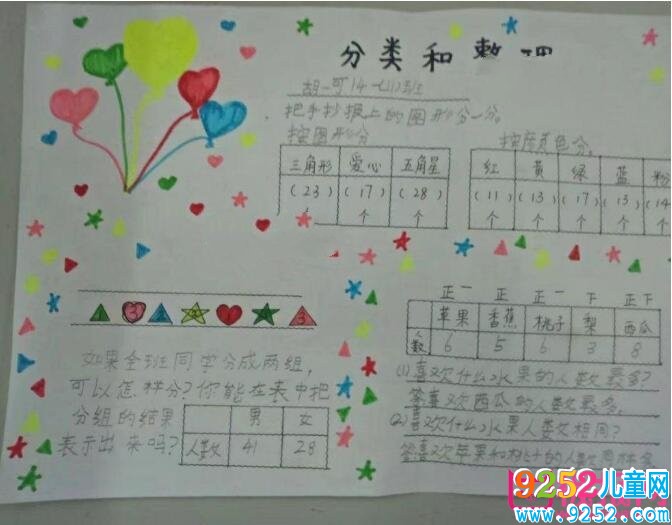 分类和整理
胡一可 1年(11)班
把手抄报上的图形分一分。
按图形分
三角形 爱心 五角星
(23)个 (17)个 (28)个
按颜色分。
红 黄 绿 蓝 粉
(11)个 (13)个 (17)个 (13)个 (14
如果全班同学分成两组,
可以怎样分?你能在表中把
分组的结果
表示出来吗?
男 女
人数 41 28
正一 正 正一 下 正下
苹果 香蕉 桃子 梨 西瓜
人数 6 5 6 3 8
(1)喜欢什么水果的人数最多?
答喜欢西瓜的人数最多。
(2)喜欢什么水果人数相同?
答喜欢苹果和桃子的人数
9252儿童网
www.9252.com